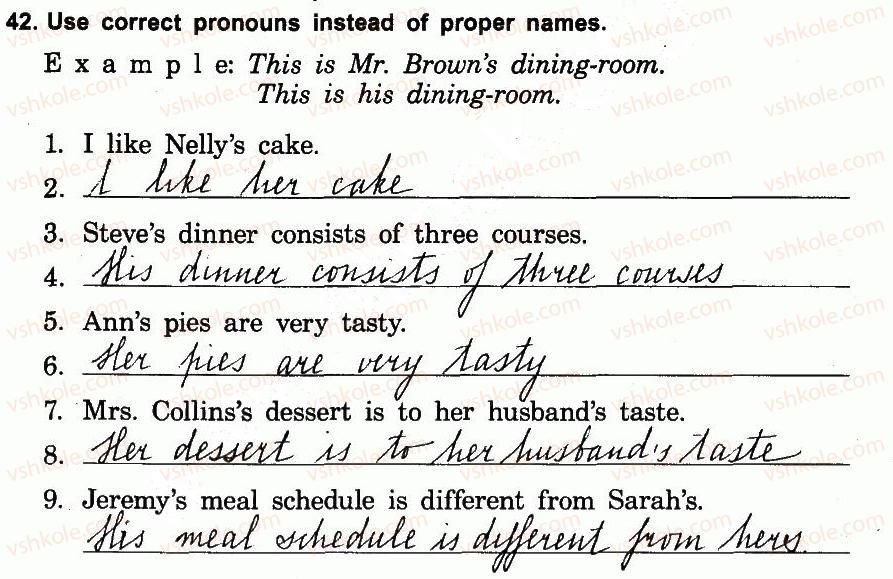 42. Use correct pronouns instead of proper names.
E x a m p l e: This is Mr. Brown's dining-room.
This is his dining-room.
1. I like Nelly's cake.
2. I like her cake
3. Steve's dinner consists of three courses.
4. His dinner consists of three courses
5. Ann's pies are very tasty.
6. Her pies are very tasty
7. Mrs. Collins's dessert is to her husband's taste.
8. Her dessert is to her husband's taste
9. Jeremy's meal schedule is different from Sarah's.
His meal schedule is different from hers.
vshkole.com